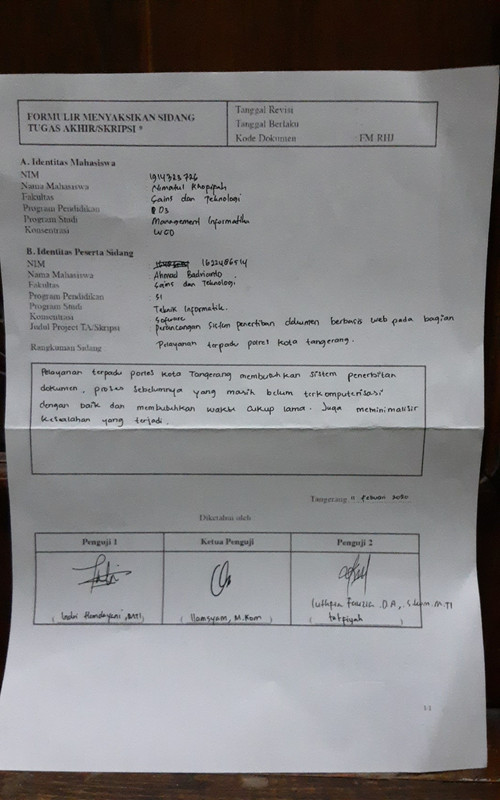 FORMULIR MENYAKSIKAN SIDANG
TUGAS AKHIR/SKRIPSI *
Tanggal Revisi
Tanggal Berlaku
Kode Dokumen : FM-RHJ
A. Identitas Mahasiswa
NIM : 1914323726
Nama Mahasiswa : Nimatul Khopipah
Fakultas : Sains dan Teknologi
Program Pendidikan : D3
Program Studi : Management Informatika
Konsentrasi : WGD
B. Identitas Peserta Sidang
NIM : 1622486514
Nama Mahasiswa : Ahmad Badrianto
Fakultas : Sains dan Teknologi
Program Pendidikan : S1
Program Studi : Teknik Informatik.
Konsentrasi : Software
Judul Project TA/Skripsi : perancangan sistem penertiban dokumen berbasis web pada bagian
Pelayanan terpadu polres kota tangerang.
Rangkuman Sidang
Pelayanan terpadu polres kota Tangerang membutuhkan sistem penerbitan
dokumen, proses sebelumnya yang masih belum terkomputerisasi
dengan baik dan membutuhkan waktu cukup lama. Juga meminimalisir
kesalahan yang terjadi.
Tangerang, 11 Februari 2020
Diketahui oleh
Penguji 1
Ketua Penguji
Penguji 2
( Indri Handayani, MTI )
( Ilamsyah, M.Kom )
Luthpea D.A, S.kom, M.TI
( )